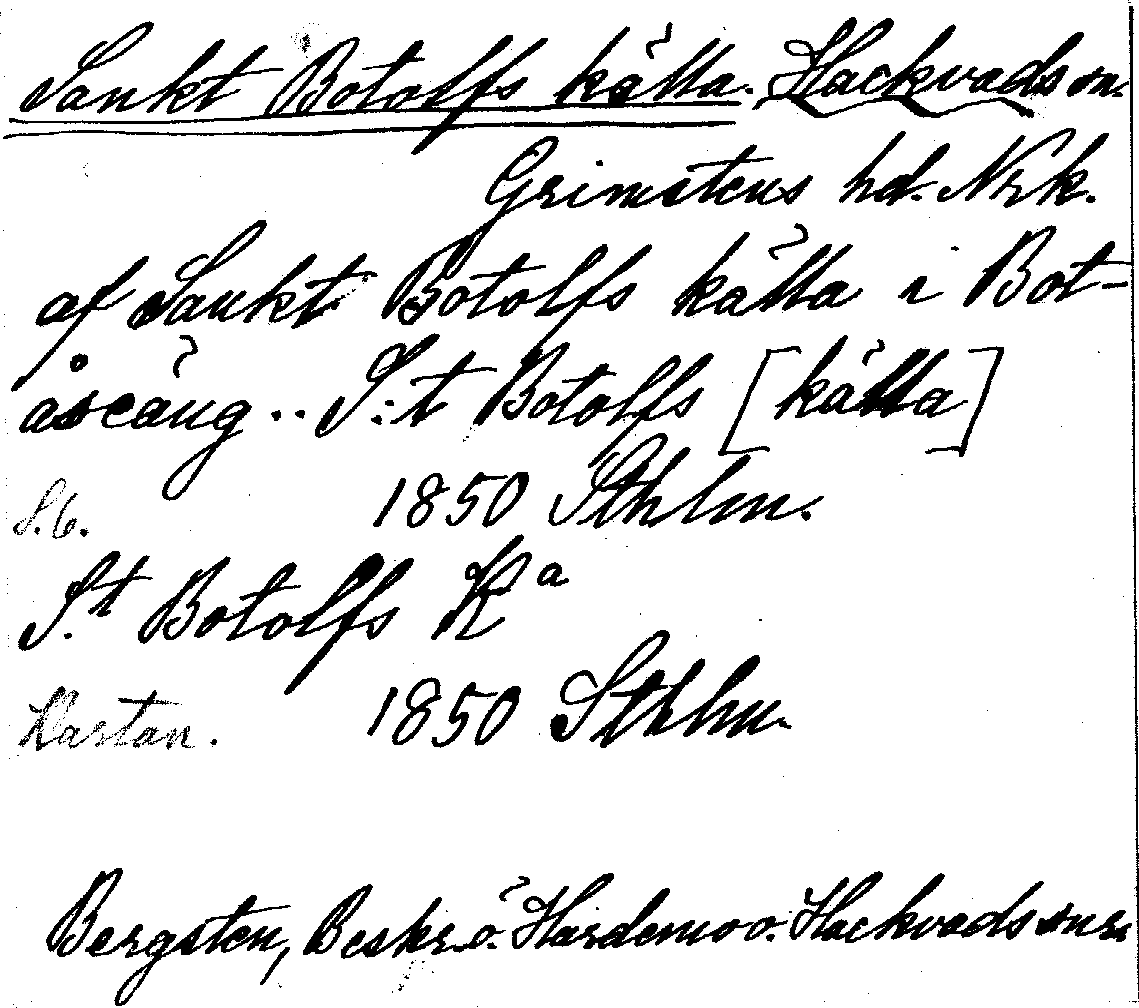 Sankt Botolfs källa. Hackvads sn.
Grimstens hd. Nrk.
af Sankt Botolfs källa i Bot-
åsäng .. S:t Botolfs [källa]
S. 6. 1850 Sthlm.
S.t Botolfs Ka
Kartan. 1850 Sthlm.
Bergsten, Beskr. ö. Hardemo o. Hackvads snr.